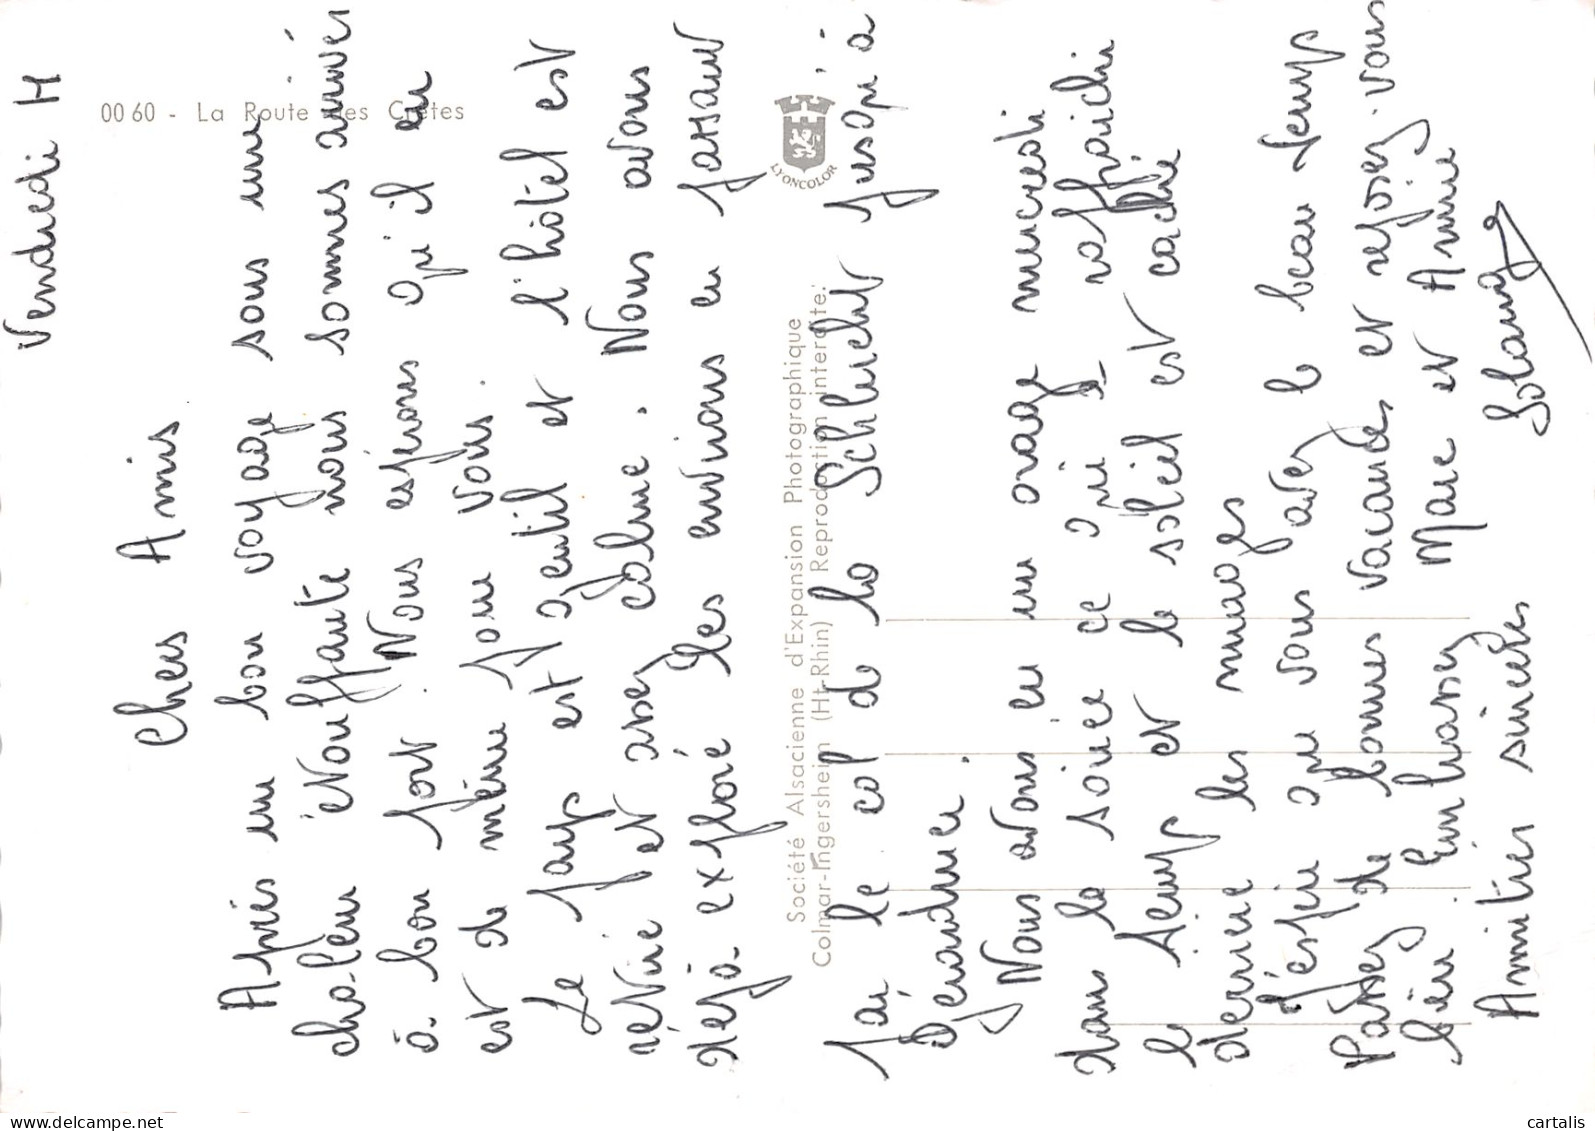 Vendredi 14
Chers Amis
Après un bon voyage sous une
chaleur étouffante nous sommes arrivés
à bon port. Nous espérons qu'il en
est de même pour vous.
Le pays est gentil et l'hôtel est
rétiré et assez calme. Nous avons
déjà exploré les environs en passant
par le col de la Schlucht jusqu'à
Gérardmer.
Nous avons eu un orage mercredi
dans la soirée ce qui a rafraichi
le temps et le soleil est caché
derrière les nuages
J'espère que vous avez le beau temps
Passez de bonnes vacances et reposez-vous
bien Embrassez Marc et Annie
Amitiés sincères Solange
0060 - La Route des Crêtes
LYONCOLOR
Société Alsacienne d'Expansion Photographique
Colmar-Ingersheim (Ht-Rhin) Reproduction interdite.
delcampe.net
cartalis